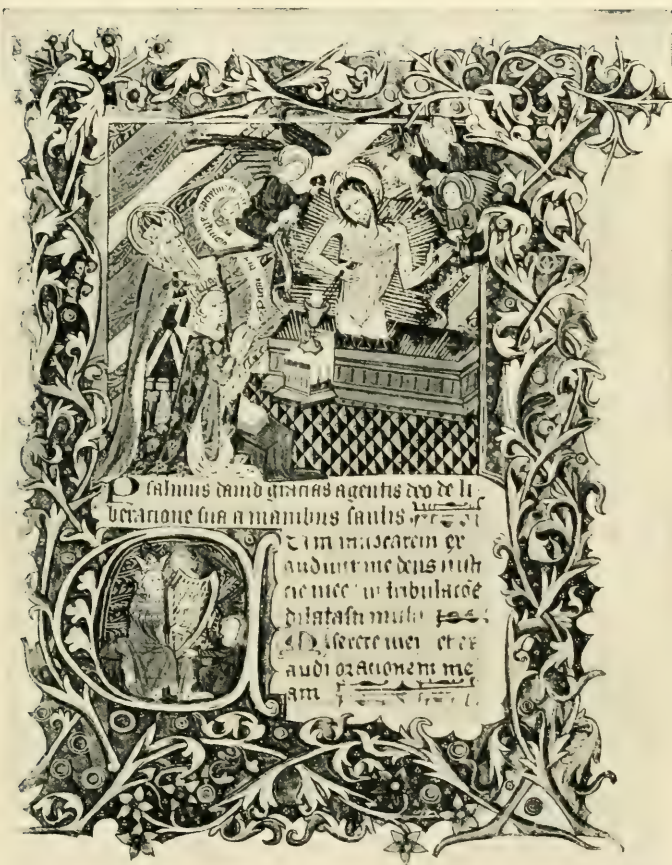 Psalmus david gracias agentis deo de li
beracione sua a manibus saulis
Cum invocarem ex
audivit me deus iusti
cie mee in tribulacōe
dilatasti michi
Miserere mei et ex
audi orationem me
am